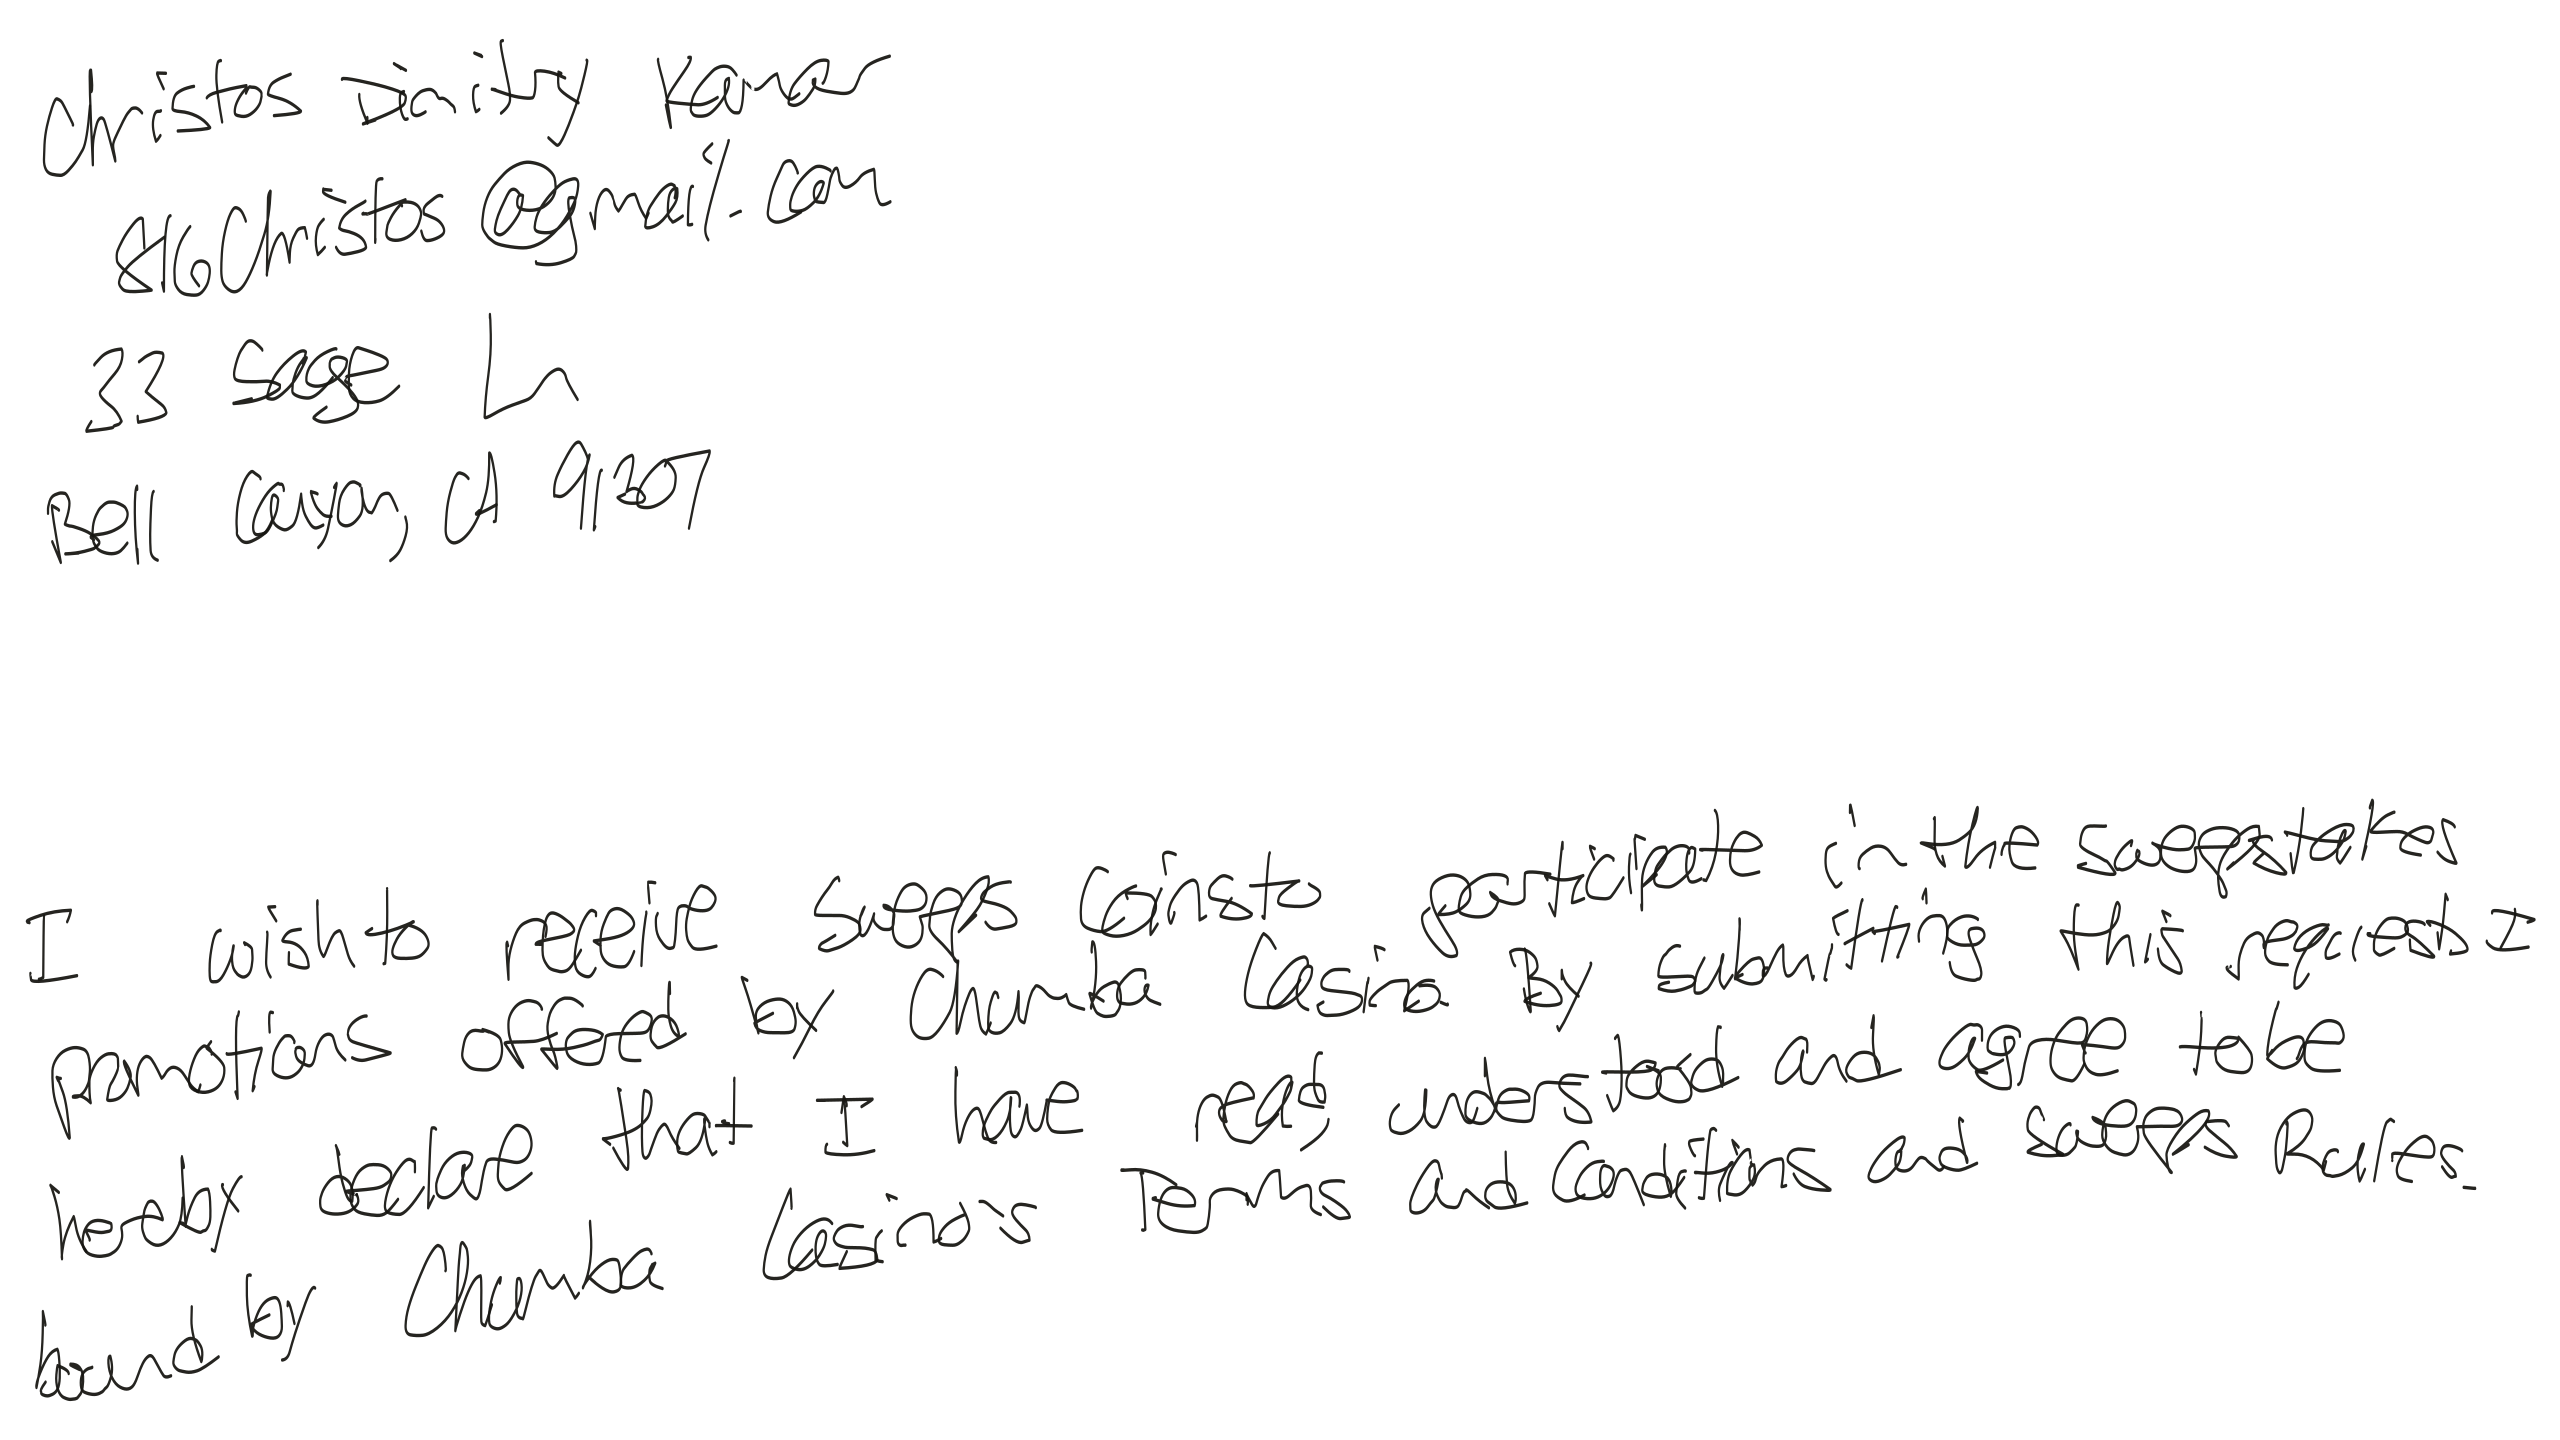 Christos Dimitry Kamar
816Christos@gmail.com
33 Sage Ln
Bell Canyon, CA 91307
I wish to receive sweeps Coins to participate in the sweepstakes
promotions offered by Chumba Casino By submitting this request I
hereby declare that I have read, understood and agree to be
bound by Chumba Casino's Terms and Conditions and sweeps Rules.